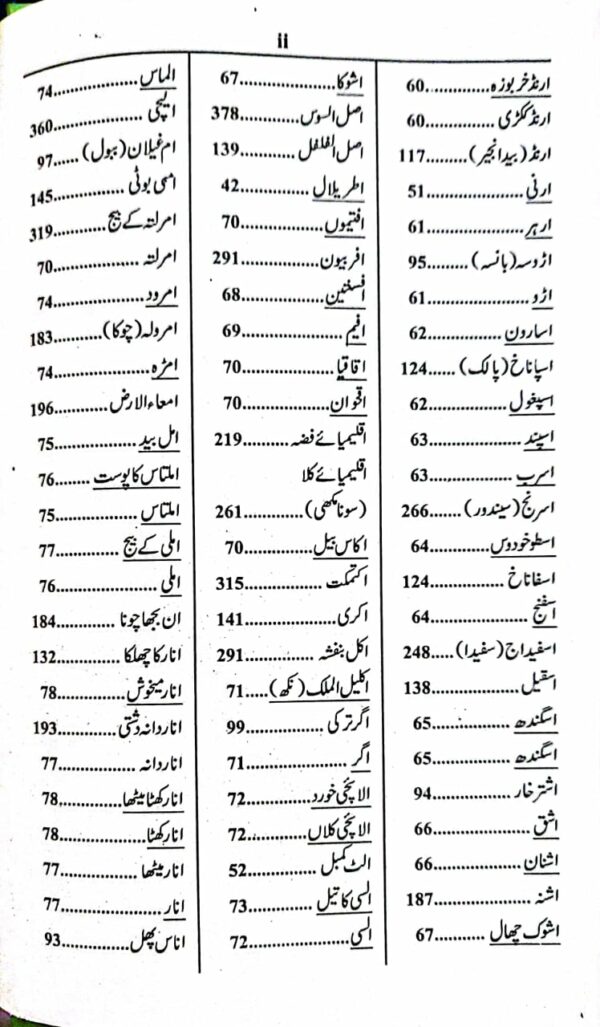 ii
ارنڈ خربوزہ..............60
ارنڈ ککڑی..............60
ارنڈ (بیدانجیر).........117
ارنی....................51
ارہر....................61
اڑوسہ (بانسہ).........95
اڑو....................61
اسارون................62
اسپاناخ (پالک)......124
اسپغول................62
اسپند..................63
اسرب.................63
اسرنج (سیندور).......266
اسطوخودوس...........64
اسفاناخ...............124
اسفنج.................64
اسفیداج (سفیدا).....248
اسقیل.................138
اسگندھ...............65
اسگندھ...............65
اشترخار...............94
اشق...................66
اشنان.................66
اشنہ..................187
اشوک چھال..........67
اشوکا.................67
اصل السوس..........378
اصل الفلفل...........139
اطریلال...............42
افتیموں................70
افربیون................291
افسنتین................68
افیم...................69
اقاقیا..................70
اقحوان................70
اقلیمیائے فضہ.........219
اقلیمیائے کلا
(سونا مکھی)..........261
اکاس بیل.............70
اکتمکت...............315
اکری..................141
اکل بنفشہ.............291
اکلیل الملک (نکھ)....71
اگر ترکی..............99
اگر....................71
الائچی خورد...........72
الائچی کلاں...........72
الٹ کمبل.............52
السی کا تیل...........73
السی..................72
الماس.................74
ایلچی.................360
ام غیلان (ببول).....97
امسی بوٹی............145
امرلتہ کے بیج.........319
امرلتہ.................70
امرود.................74
امرولہ (چوکا).........183
امڑہ..................74
امعاء الارض...........196
امل بید...............75
املتاس کا پوست......76
املتاس................75
املی کے بیج..........77
املی..................76
ان بجھا چونا..........184
انار کا چھلکا............132
انار میخوش............78
انار دانہ دشتی.........193
انار دانہ...............77
انار کھٹا میٹھا..........78
انار کھٹا...............78
انار میٹھا..............77
انار...................77
اناس پھل............93